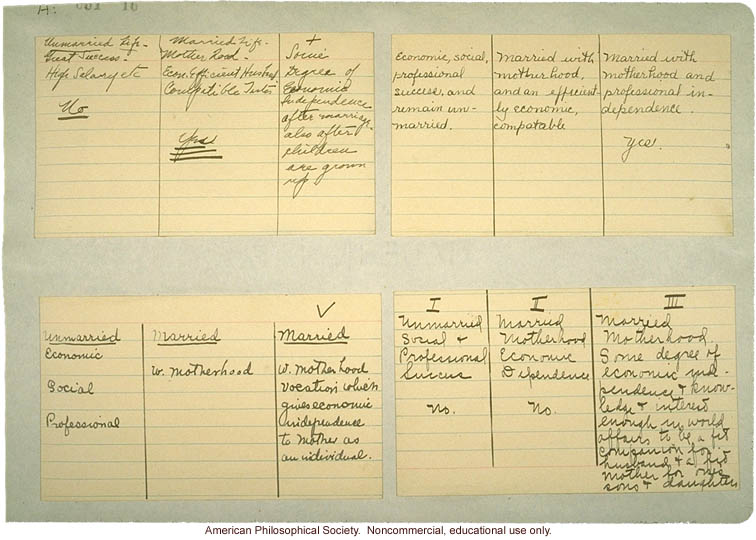 A: 001 16
Unmarried Life -
Great Success -
High Salary etc
No
Married Life -
Motherhood -
Econ. Efficient
Compatible Tastes
Yes
+
Some
Degree of
Economic
Independence
after marriage -
also after
children
are grown
up
Economic, social,
professional
success, and
remain un-
married.
Married with
motherhood,
and an efficient-
ly economic,
compatable
Married with
motherhood and
professional in-
dependence.
Yes.
Unmarried
Economic
Social
Professional
Married
w. motherhood
V
Married
w. motherhood
vocation which
gives economic
independence
to mother as
an individual.
I
Unmarried
Social &
Professional
Success
No.
II
Married
Motherhood
Economic
Dependence
No.
III
Married
Motherhood.
Some degree of
economic inde-
pendence & know-
ledge & interest
enough in world
affairs to be a fit
companion for
husband & a fit
mother for one's
sons & daughters
American Philosophical Society. Noncommercial, educational use only.